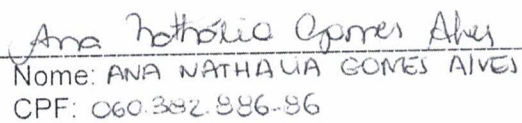 Ana Nathália Gomes Alves
Nome: ANA NATHALIA GOMES ALVES
CPF: 060.392.986-96